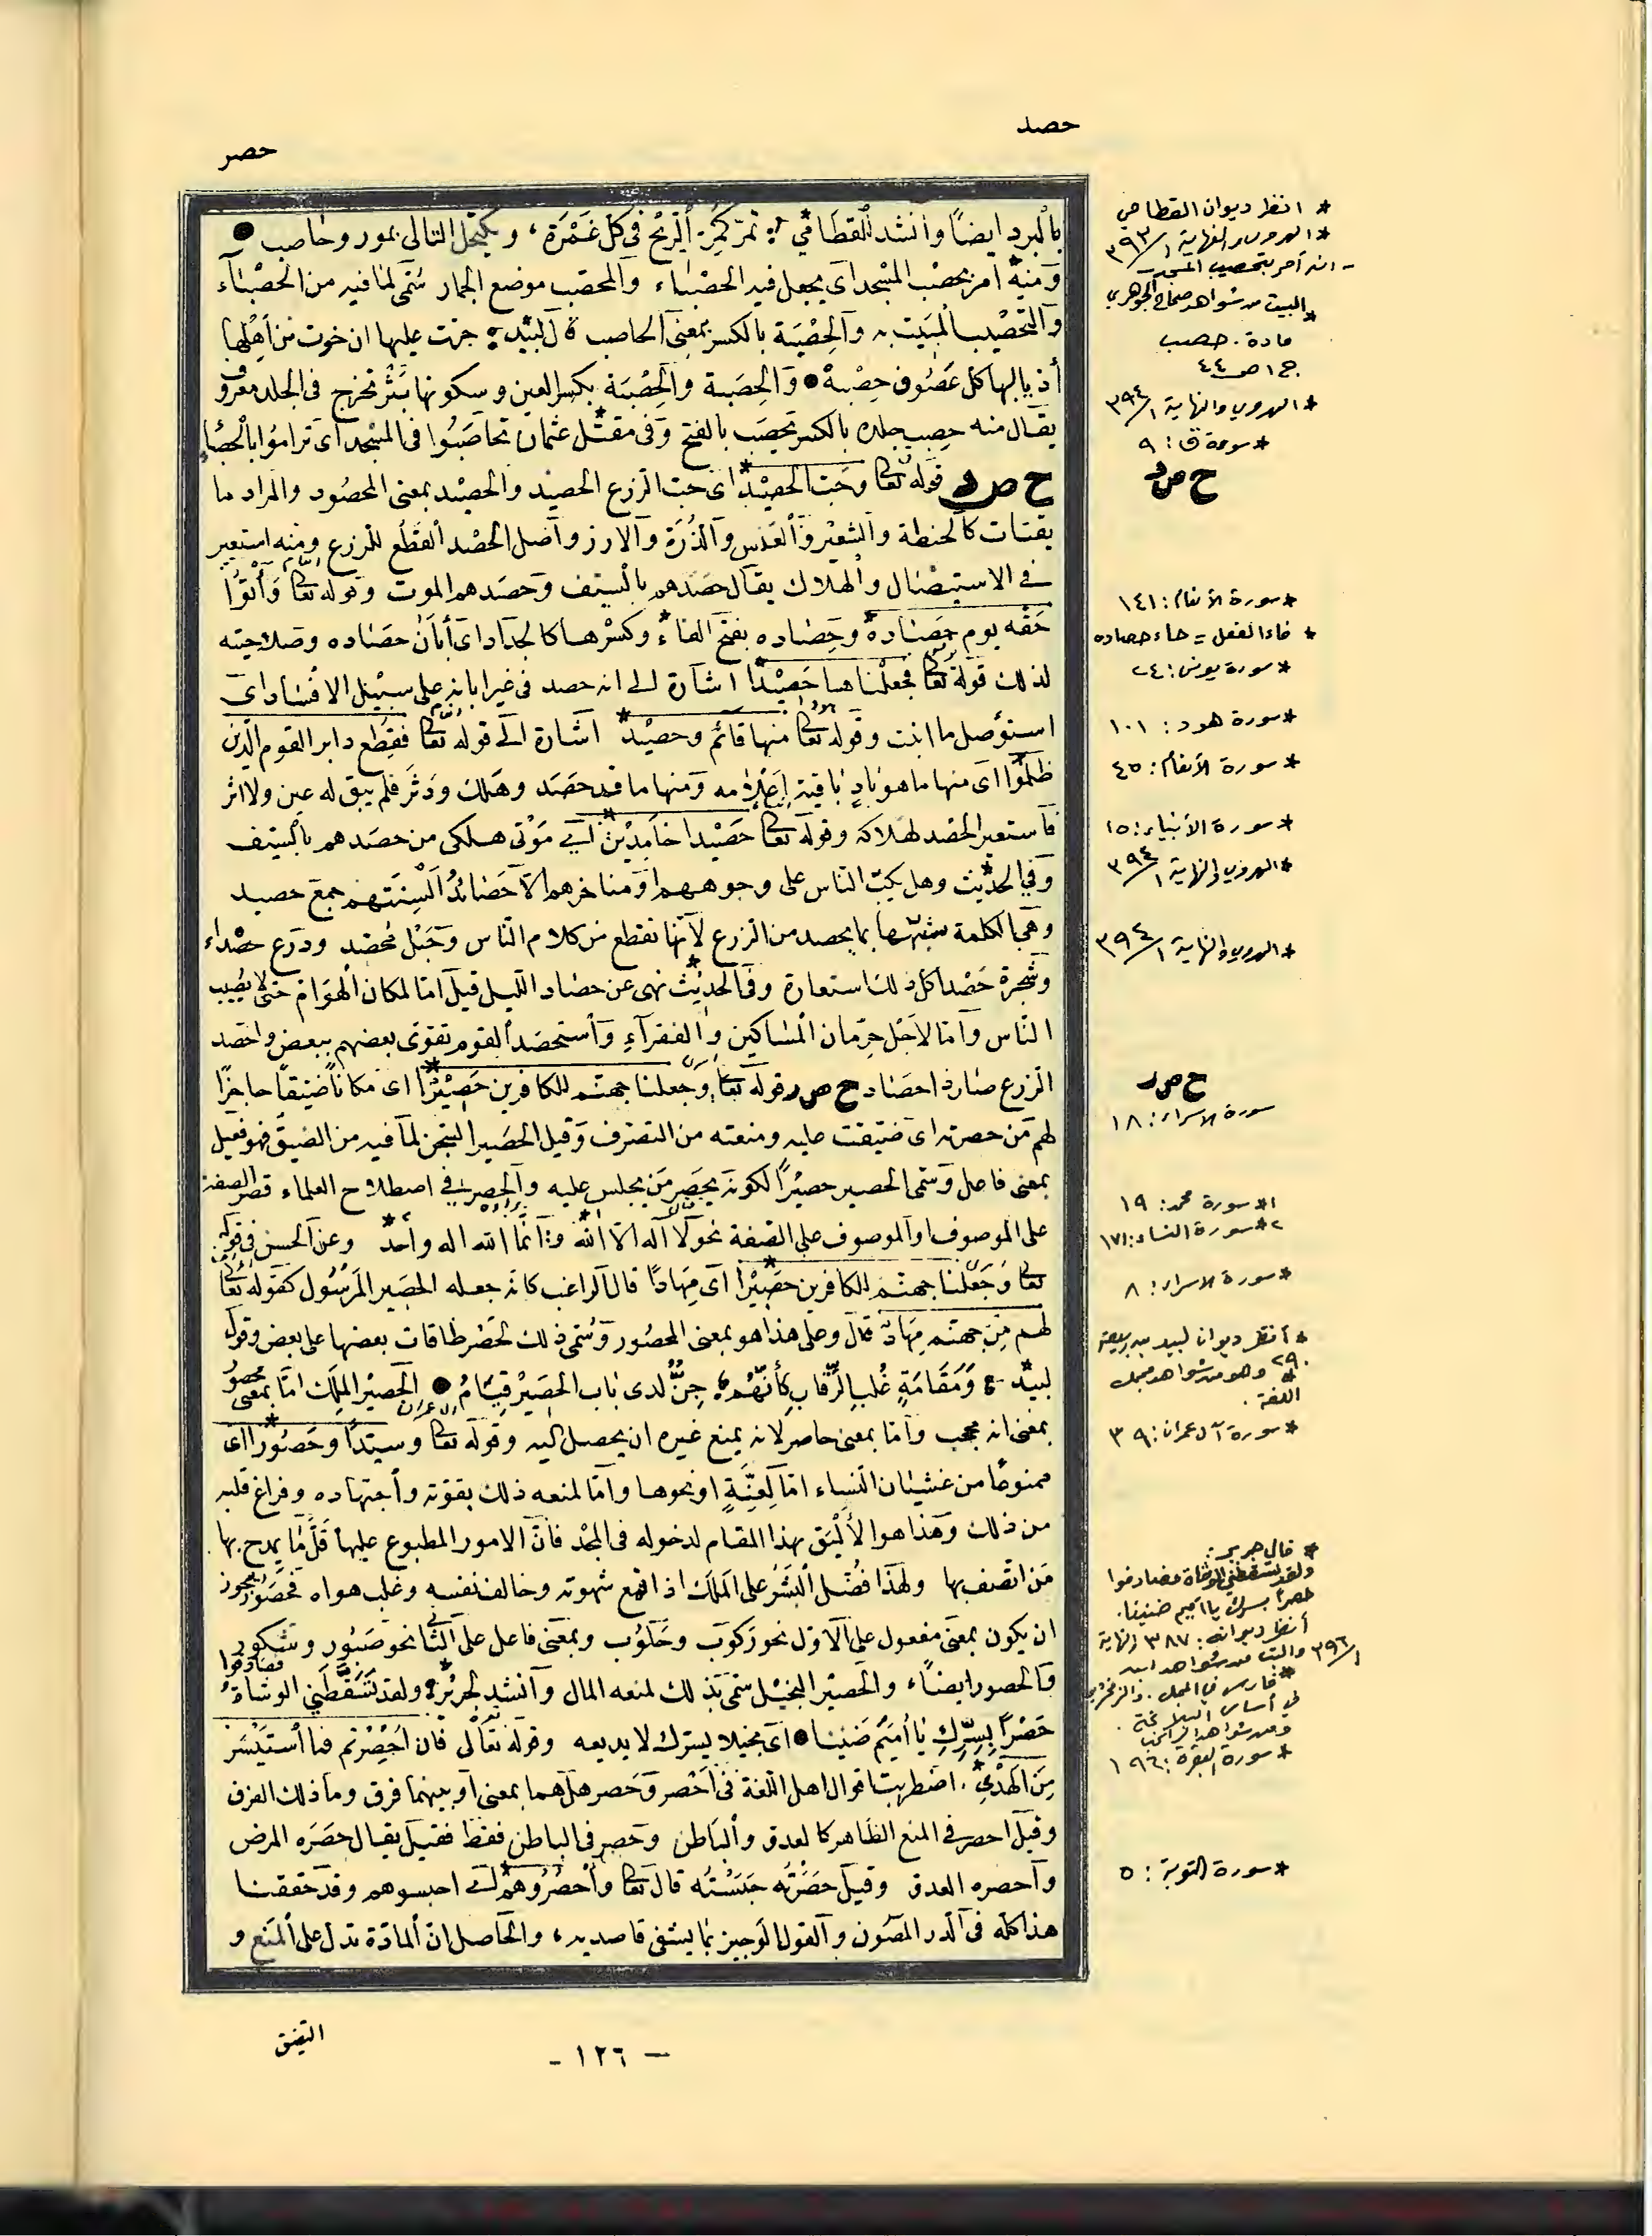 حصد
حصر
بالبرد ايضاً وانشد للقطامي تمر كمر الريح في كل غمرة، ويكتحل التالي بمور وحاصب
ومنه امر بحصب المسجد اى يجعل فيه الحصباء والمحصب موضع الجمار سمى لما فيه من الحصباء
والتحصيب المبيت به والحصبة بالكسر بمعنى الحاصب قال لبيد جرت عليها ان خوت من أهلها
أذيالها كل عصوف حصبه والحصبة والحصبة بكسر العين وسكونها بثر تخرج فى الجلد معروف
يقال منه حصب جلده بالكسر يحصب بالفتح وفى مقتل عثمان تحاصبوا فى المسجد اى تراموا بالحصباء
ح ص د قوله تعالى وحب الحصيد اى حب الزرع الحصيد والحصيد بمعنى المحصود والمراد ما
يقتات كالحنطة والشعير والعدس والذرة والارز وأصل الحصد القطع للزرع ومنه استعير
فى الاستيصال والهلاك يقال حصدهم بالسيف وحصدهم الموت وقوله تعالى وآتوا
حقه يوم حصاده وحصاده بفتح الفاء وكسرها كالجداد اى أبان حصاده وصلاحيته
لذلك قوله تعالى فجعلناها حصيدا اشارة الى انه حصد فى غير ابانه على سبيل الافساد اى
استؤصل ما انبت وقوله تعالى منها قائم وحصيد اشارة الى قوله تعالى فقطع دابر القوم الذين
ظلموا اى منها ما هو باد باقية اعلامه ومنها ما قد حصد وهلك ودثر فلم يبق له عين ولا اثر
فاستعير الحصد لهلاكه وقوله تعالى حصيدا خامدين اى موتى هلكى من حصدهم بالسيف
وفى الحديث وهل يكب الناس على وجوههم او مناخرهم الا حصائد ألسنتهم جمع حصيد
وهى الكلمة شبهها بما يحصد من الزرع لأنها تقطع من كلام الناس وحبل محصد ودرع حصداء
وشجرة حصداء كل ذلك استعارة وفى الحديث نهى عن حصاد الليل قيل اما لمكان الهوام حتى لا يصيب
الناس واما لاجل حرمان المساكين والفقراء واستحصد القوم تقوى بعضهم ببعض واحصد
الزرع صار ذا حصاد ح ص ر قوله تعالى وجعلنا جهنم للكافرين حصيرا اى مكاناً ضيقاً حاجزا
لهم من حصرته اى ضيقت عليه ومنعته من التصرف وقيل الحصير السجن لما فيه من الضيق فهو فعيل
بمعنى فاعل وسمى الحصير حصيرا لكونه يحصر من يجلس عليه والحصر فى اصطلاح العلماء قصر الصفة
على الموصوف او الموصوف على الصفة نحو لا اله الا الله انما الله اله واحد وعن الحسن فى قوله
تعالى وجعلنا جهنم للكافرين حصيرا اى مهادًا قال الراغب كانه جعله الحصير المرمول كقوله تعالى
لهم من جهنم مهاد قال وعلى هذا هو بمعنى المحصور وسمى ذلك لحصر طاقات بعضها على بعض وقول
لبيد ومقامة غلب الرقاب كأنهم جن لدى باب الحصير قيام الحصير الملك اما بمعنى محصور
بمعنى انه محجب واما بمعنى حاصر لانه يمنع غيره ان يصل اليه وقوله تعالى وسيدا وحصورا اى
ممنوعًا من غشيان النساء اما لعنة او نحوها واما لمنعه ذلك بقوته واجتهاده وفراغ قلبه
من ذلك وهذا هو الأليق بهذا المقام لدخوله فى المجد فان الامور المطبوع عليها قلما يمدح بها
من اتصف بها ولهذا فضل البشر على الملك اذا قمع شهوته وخالف نفسه وغلب هواه فحصور يجوز
ان يكون بمعنى مفعول على الاول نحو ركوب وحلوب وبمعنى فاعل على الثانى نحو صبور وشكور
والحصور ايضاً والحصير البخيل سمى بذلك لمنعه المال وانشد لجرير ولقد تسقطني الوشاة فصادفوا
حصرًا بسرك يا أميم ضنينا اى بخيلا بسرك لا يذيعه وقوله تعالى فان احصرتم فما استيسر
من الهدي اضطربت اقوال اهل اللغة فى احصر وحصر هل هما بمعنى او بينهما فرق وما ذلك الفرق
وقيل احصر فى المنع الظاهر كالعدو والباطن وحصر فى الباطن فقط فقيل يقال حصره المرض
وأحصره العدو وقيل حصرته حبسته قال تعالى وأحصروهم اى احبسوهم وقد حققنا
هذا كله فى الدر المصون والقول الوجيز بما يشفى قاصديه، والحاصل ان المادة تدل على المنع و
التضيق
- ١٢٦ -
* انظر ديوان القطامي
* الهروي والنهاية ١/٣٩٣
- انه أمر بتحصيب المسجد -
* البيت من شواهد صحاح الجوهري
مادة . حصب
ج ١ ص ٤٤
* الهروي والنهاية ١/٣٩٤
* سورة ق : ٩
ح ص د
* سورة الأنعام : ١٤١
* فاء الفعل = حاء حصاده
* سورة يونس : ٢٤
* سورة هود : ١٠١
* سورة الأنعام : ٤٥
* سورة الأنبياء : ١٥
* الهروي والنهاية ١/٣٩٤
* الهروي والنهاية ١/٣٩٤
ح ص ر
سورة الاسراء : ١٨
١* سورة محمد : ١٩
٢* سورة النساء : ١٧١
* سورة الاسراء : ٨
* أنظر ديوان لبيد بن ربيعة
٢٩٠ وهو من شواهد مجمل
اللغة .
* سورة آل عمران : ٣٩
* قال جرير :
ولقد تسقطني الوشاة فصادفوا
حصرا بسرك يا أميم ضنينا .
أنظر ديوانه : ٣٨٧ النهاية
١/٣٩٦ والبيت من شواهد ابن
فارس في المجمل . والزمخشري
في أساس البلاغة .
ومن شواهد الراغب
* سورة البقرة : ١٩٦
* سورة التوبة : ٥